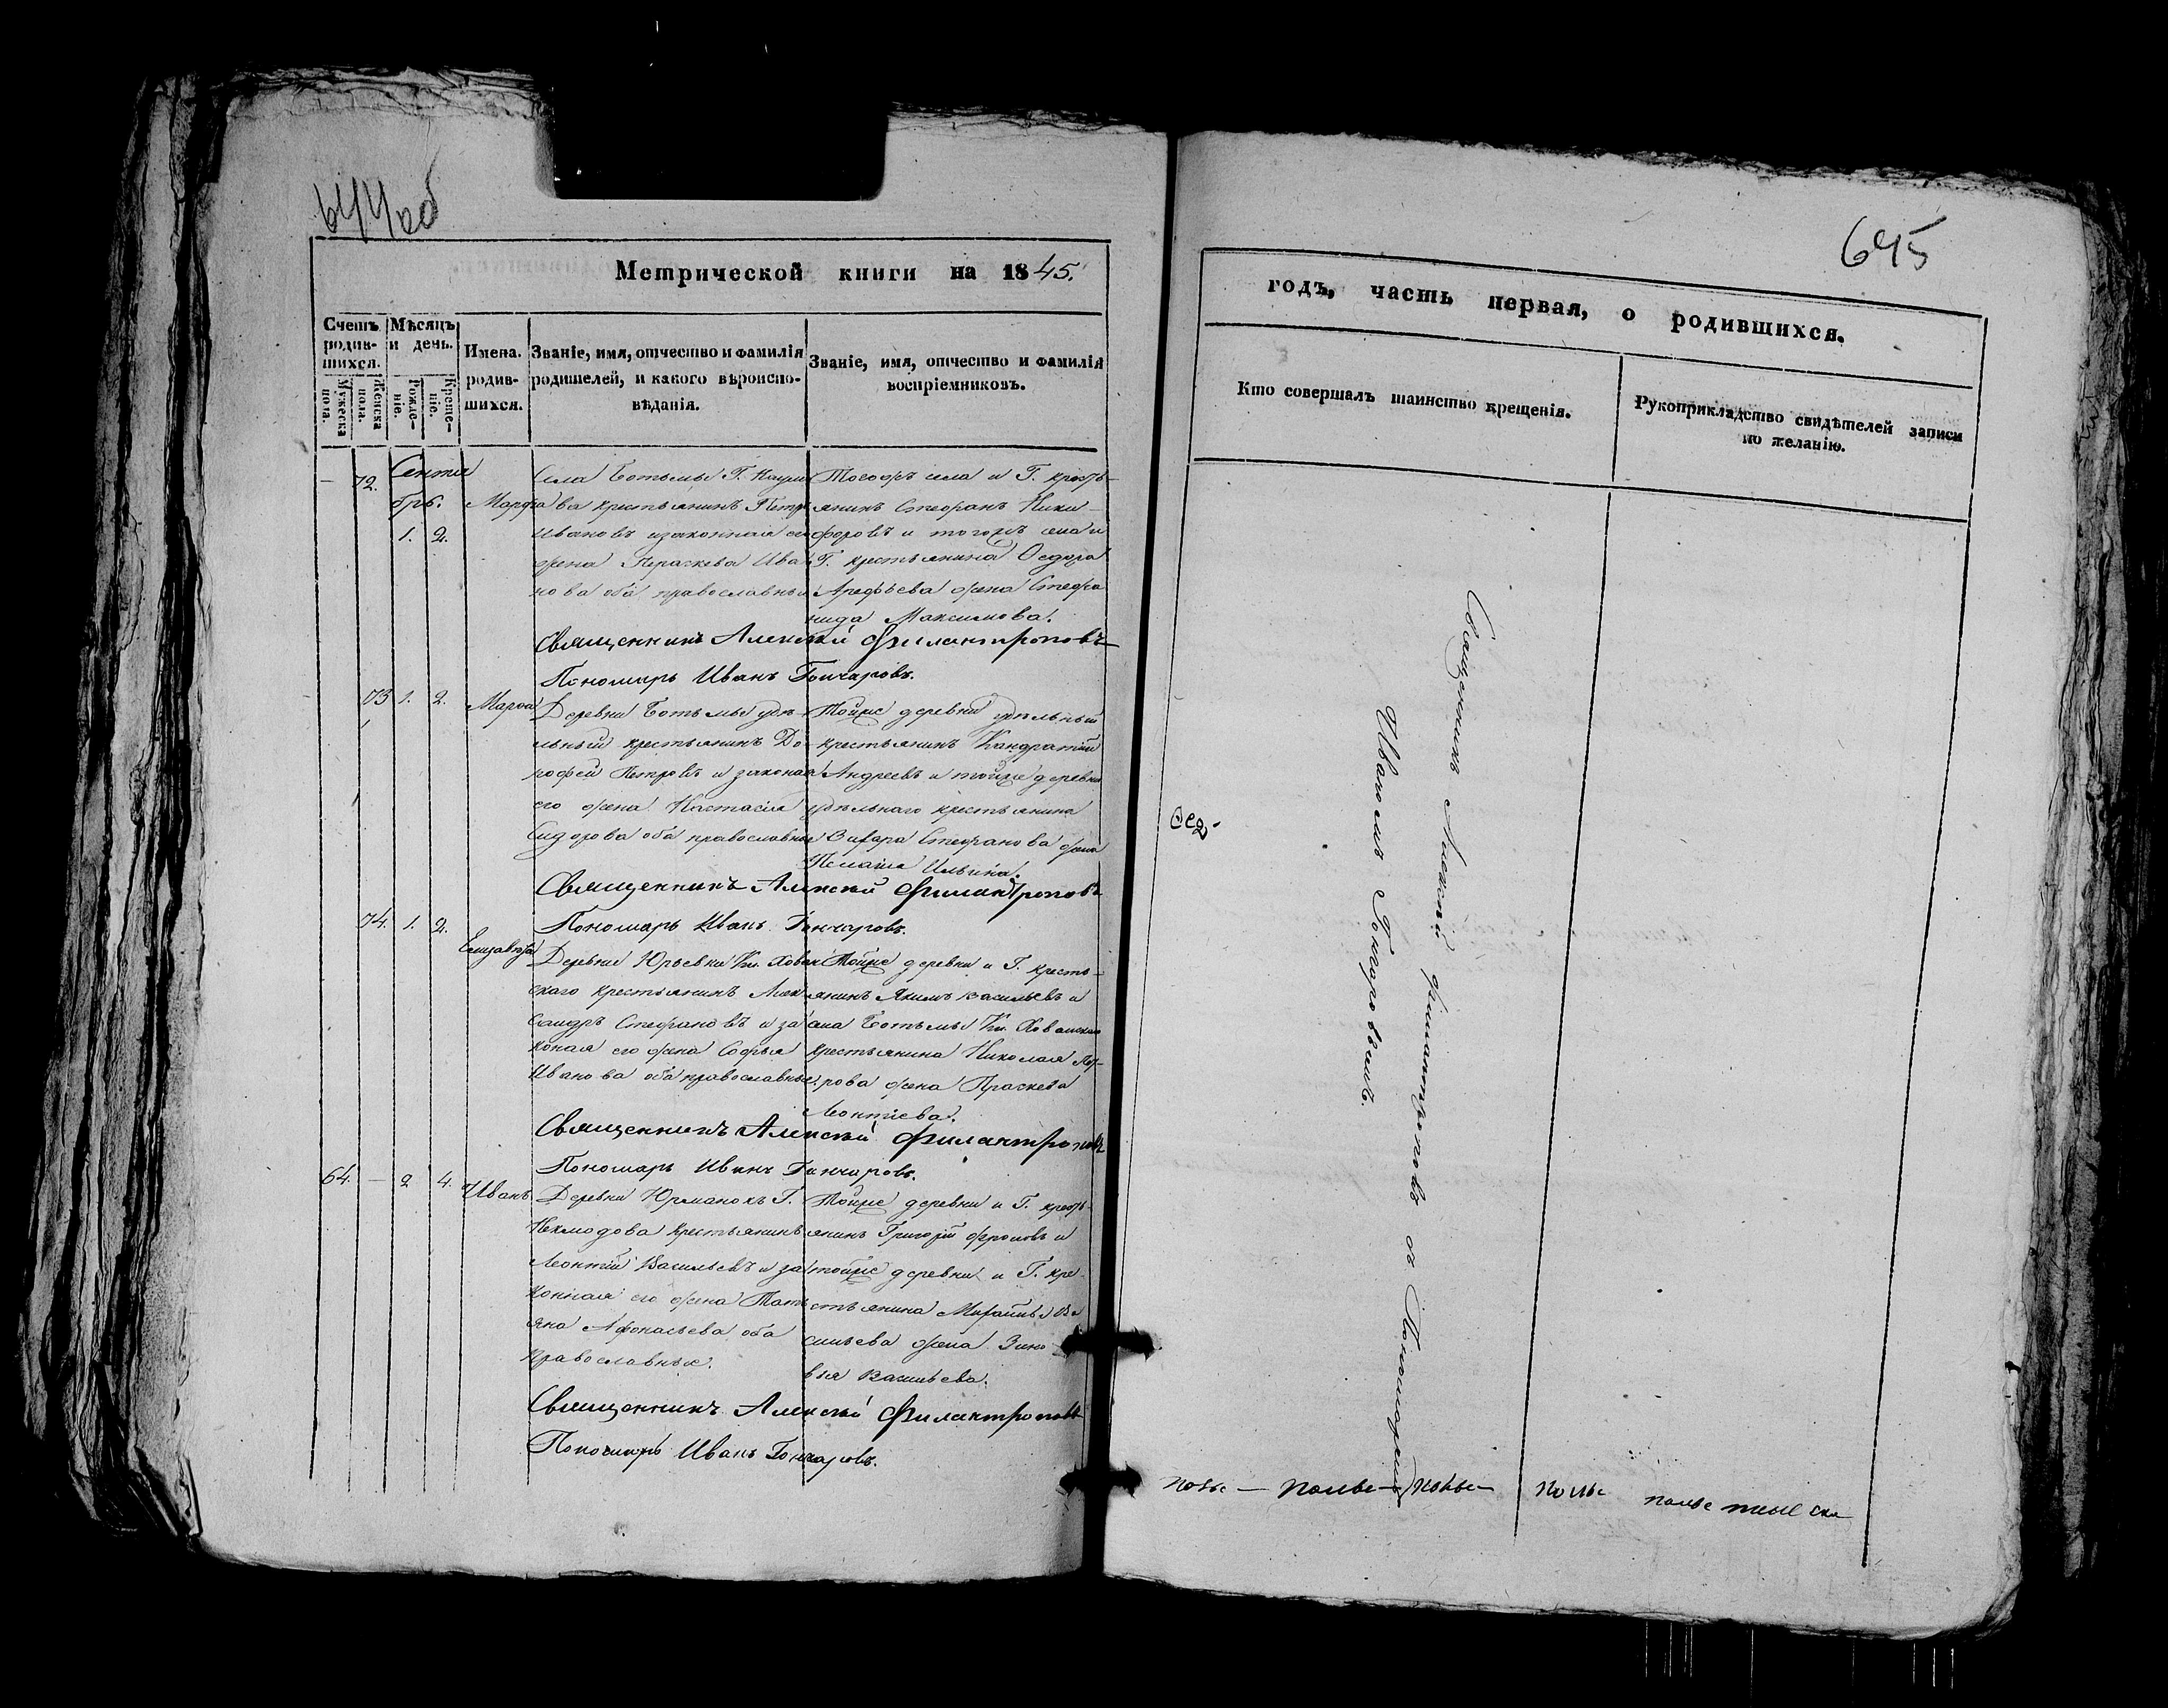 644об
Метрической книги на 1845.
Счетъ родив-шихся.
Мужеска пола.
Женска пола.
Мѣсяцъ и день.
Рожде-ніе.
Креще-ніе.
Имена родив-шихся.
Званіе, имя, отчество и фамилія
родителей, и какого вѣроиспо-
вѣданія.
Званіе, имя, отчество и фамилія
воспріемниковъ.
— 72.
Сентя
брь.
1. 2.
Марфа
Села Ботьмы Г. Наумо
ва крестьянинъ Петръ
Ивановъ и законная его
жена Параскева Ива
нова оба православные
Тогожъ села и Г. кресть-
янинъ Стефанъ Ники-
форовъ и тогожъ села и
Г. крестьянина Федора
Арефьева жена Стефа
нида Максимова.
Священникъ Алексій Филантроповъ
Пономарь Иванъ Гончаровъ.
73 1. 2.
Марфа
Деревни Ботьмы удѣ-
льный крестьянинъ До-
рофей Петровъ и законая
его жена Настасія
Сидорова оба православные
Тойже деревни удѣльный
крестьянинъ Кандратій
Андреевъ и тойже деревни
удѣльнаго крестьянина
Захара Стефанова жена
Пелагія Ильина.
Священникъ Алексій Филантроповъ
Пономарь Иванъ Гончаровъ.
74. 1. 2.
Елизавета
Деревни Юрьевки Кн. Хован
скаго крестьянинъ Алек
сандръ Стефановъ и за
коная его жена Софья
Иванова оба православные.
Тойже деревни и Г. кресть-
янинъ Якимъ Васильевъ и
села Ботьмы Кн. Хованскаго
крестьянина Николая
рова жена Праскева
Леонтіева.
Священникъ Алексій Филантроповъ
Пономарь Иванъ Гончаровъ.
64. — 2 4.
Иванъ
Деревни Юрманокъ Г.
крестьянинъ
Леонтій Васильевъ и за
конная его жена Тать
яна Афонасьева оба
православные.
Тойже деревни и Г. кресть-
янинъ Григорій Фроловъ и
тойже деревни и Г. кре-
стьянина Михаилы Ва
сильева жена Зино-
вья Васильева.
Священникъ Алексій Филантроповъ
Пономарь Иванъ Гончаровъ.
645
годъ, часть первая, о родившихся.
Кто совершалъ таинство крещенія.
Рукоприкладство свидѣтелей записи
по желанію.
Священникъ Алексій Филантроповъ съ Пономаремъ
Иваномъ Гончаровымъ.